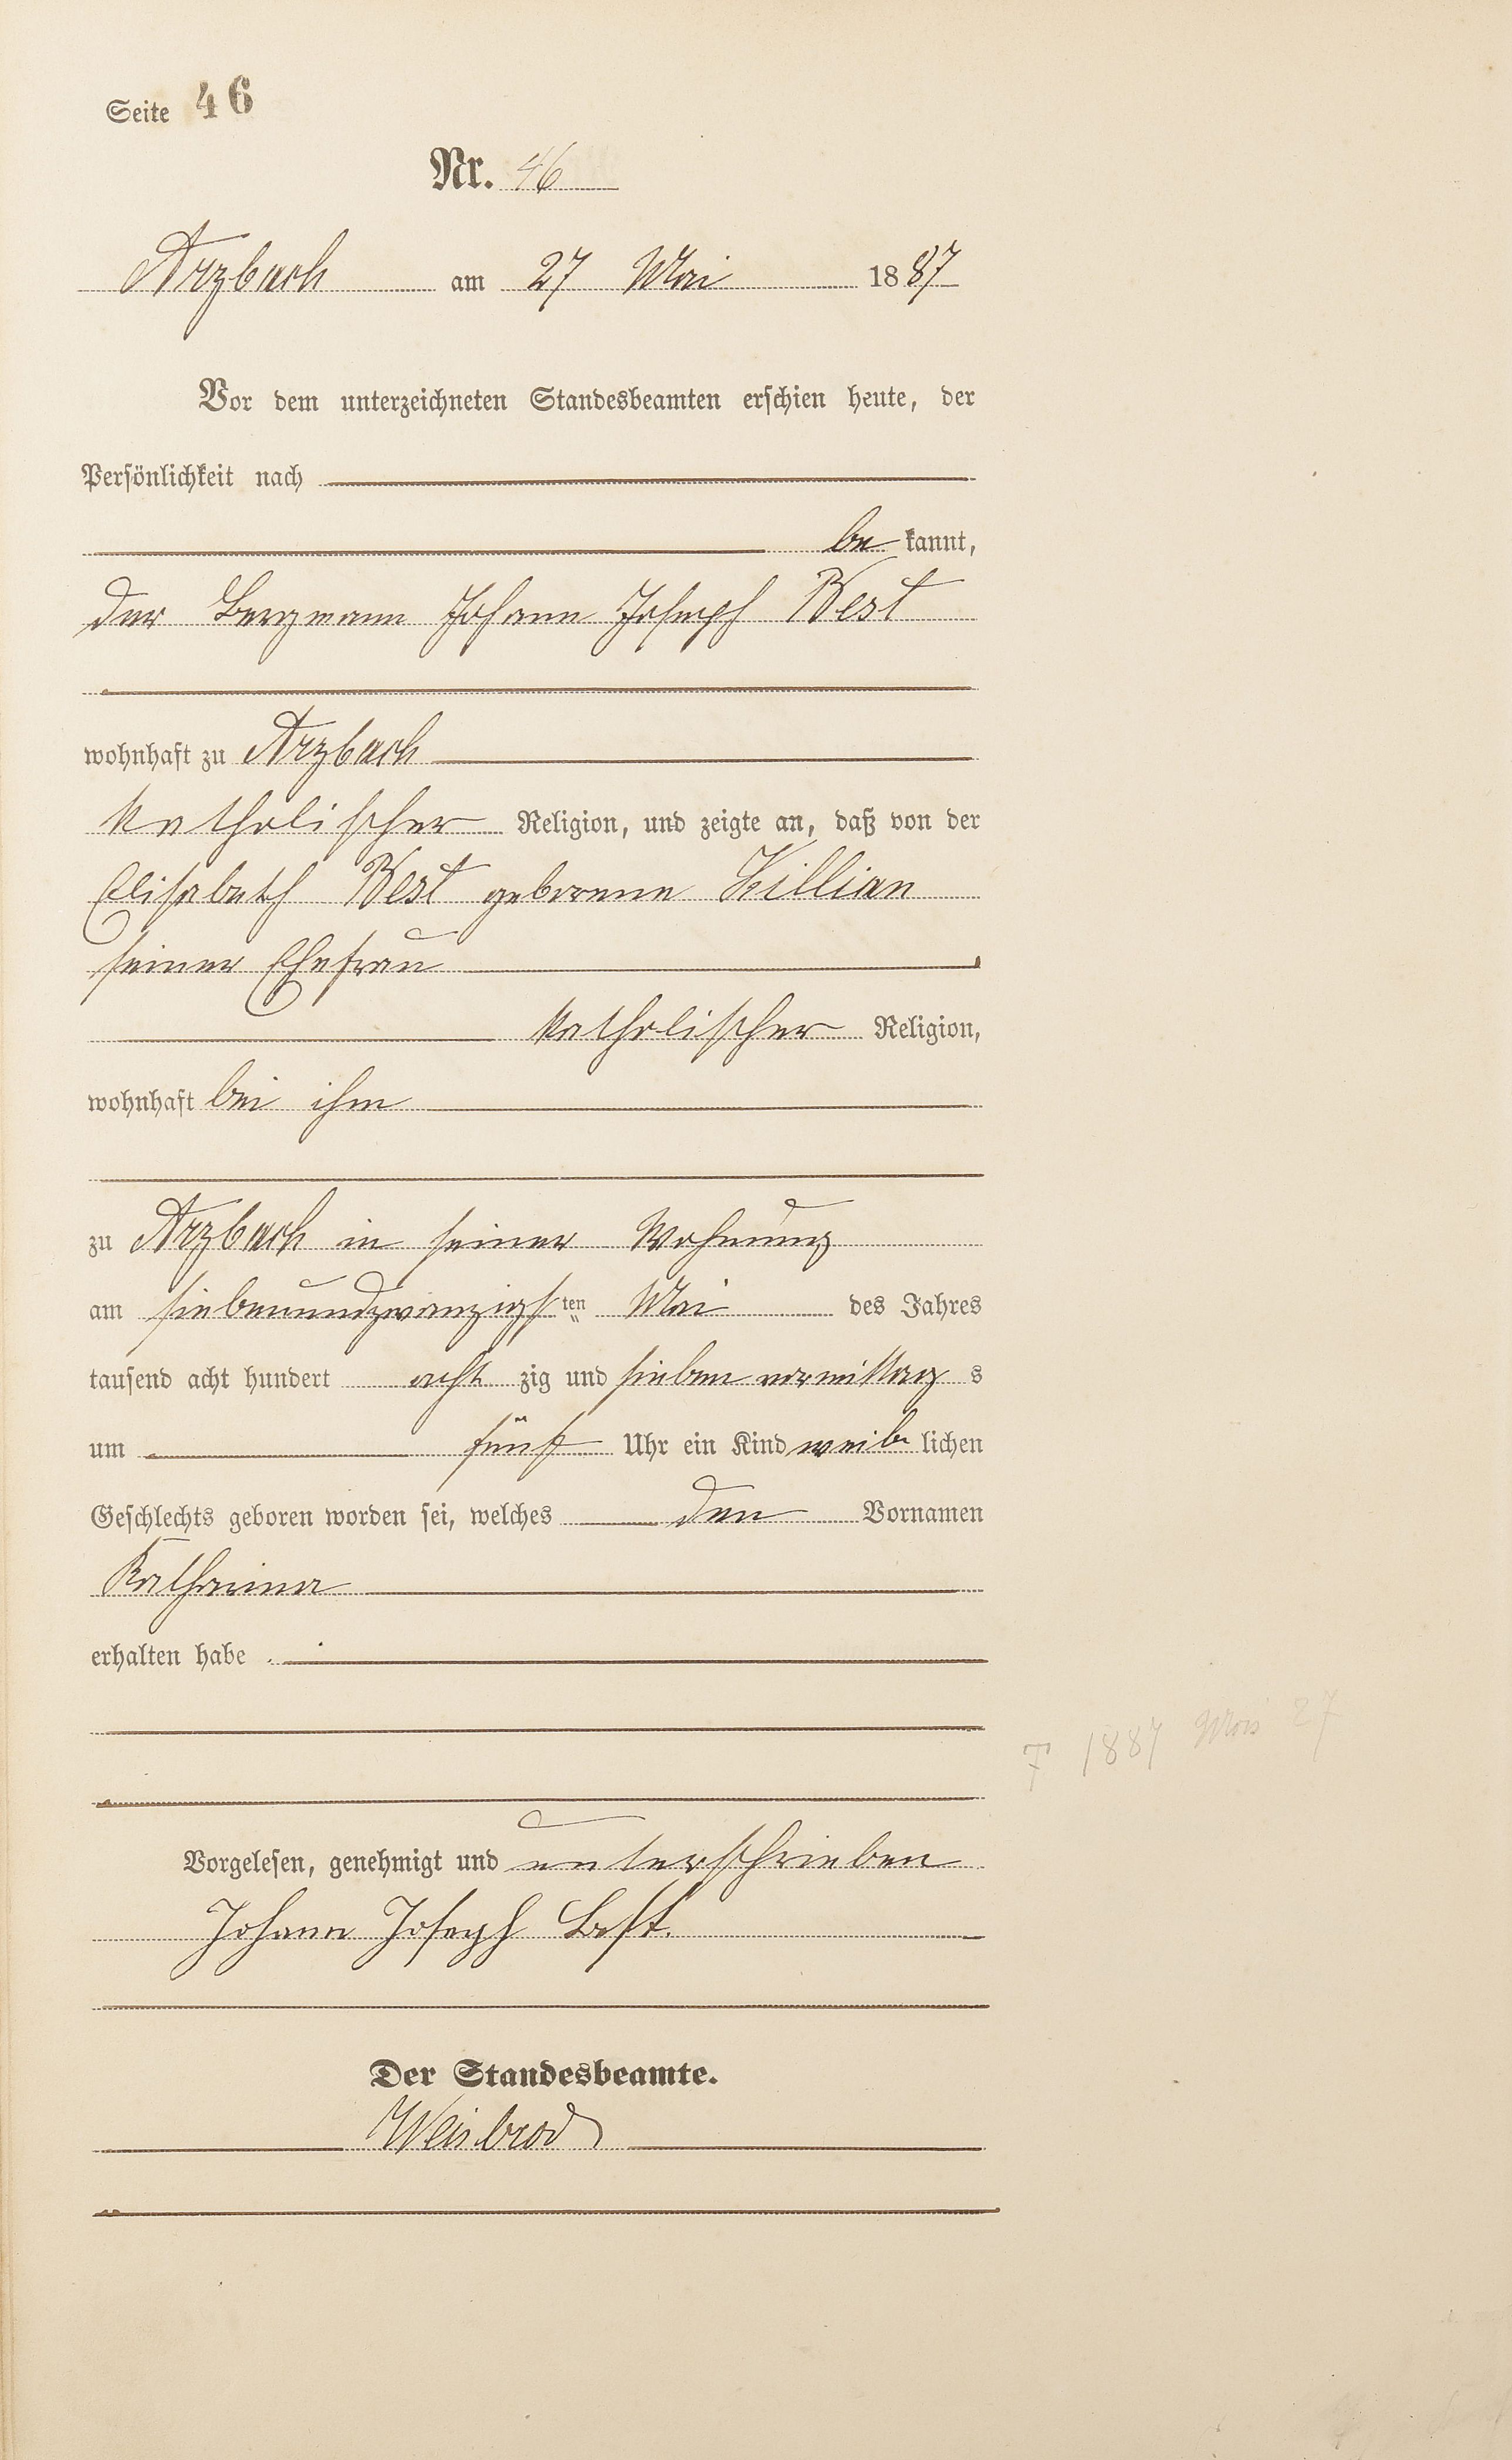 Seite 46
Nr. 46
Arzbach am 27 Mai 1887
Vor dem unterzeichneten Standesbeamten erschien heute, der
Persönlichkeit nach
be kannt,
der Bergmann Johann Joseph Best
wohnhaft zu Arzbach
katholischer Religion, und zeigte an, daß von der
Elisabeth Best geborene Killian
seiner Ehefrau
katholischer Religion,
wohnhaft bei ihm
zu Arzbach in seiner Wohnung
am siebenundzwanzigsten Mai des Jahres
tausend acht hundert acht zig und sieben vormittag s
um fünf Uhr ein Kind weib lichen
Geschlechts geboren worden sei, welches den Vornamen
Katharina
erhalten habe
† 1887 Mai 27
Vorgelesen, genehmigt und unterschrieben
Johann Joseph Best.
Der Standesbeamte.
Weisbrod